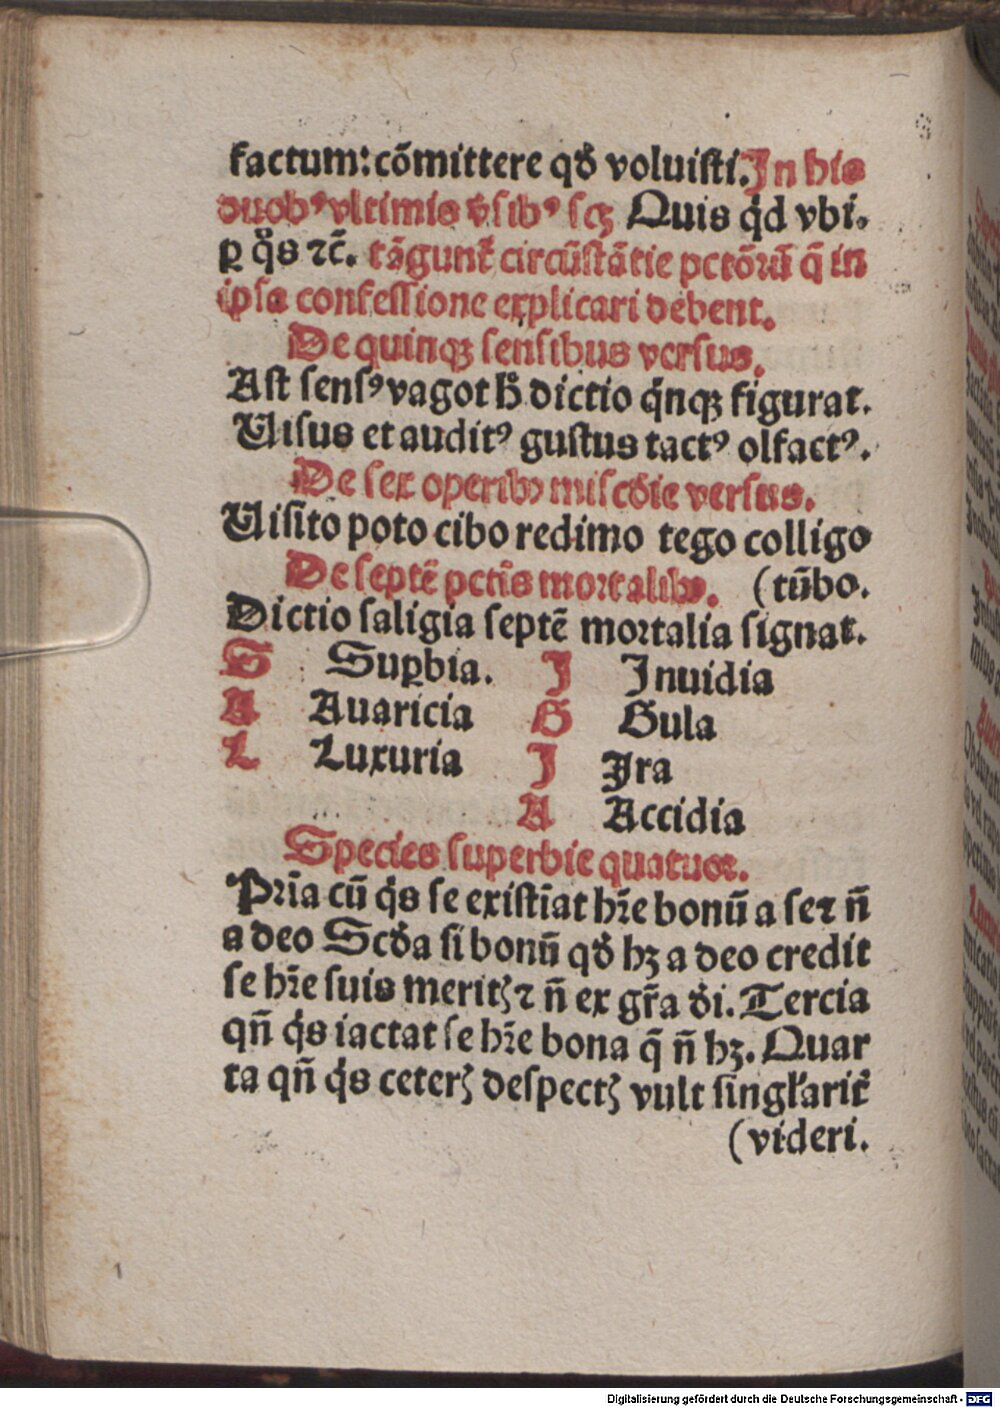 factum: cōmittere qđ voluiſti. In his
duobꝰ vltimis v̄ſibꝰ ſcꝫ Quis qͥd vbi.
ꝑ qͦs ⁊c̄. tāgunt̄ circūſtātie pctōrū q̄ in
ipſa confeſſione explicari debent.
De quinqꝫ ſenſibus verſus.
Aſt ſenſꝰ vagot h̄ dictio qͥnqꝫ figurat.
Uiſus et auditꝰ guſtus tactꝰ olfactꝰ.
De ſex operibꝫ miſcd̄ie verſus.
Uiſito poto cibo redimo tego colligo
De ſeptē pctīs mortalibꝫ. (tūbo.
Dictio ſaligia ſeptē mortalia ſignat.
S Suꝑbia. I Inuidia
A Auaricia G Gula
L Luxuria I Ira
A Accidia
Species ſuperbie quatuor.
Prīa cū qͥs ſe exiſtīat hr̄e bonū a ſe ⁊ n̄
a deo Scd̄a ſi bonū qđ hꝫ a deo credit
ſe hr̄e ſuis meritꝭ ⁊ n̄ ex gr̄a di. Tercia
qn̄ qͥs iactat ſe hr̄e bona q̄ n̄ hꝫ. Quar
ta qn̄ qͥs ceterꝭ deſpectꝭ vult ſingl̄arit̄
(videri.
1
Digitalisierung gefördert durch die Deutsche Forschungsgemeinschaft - DFG